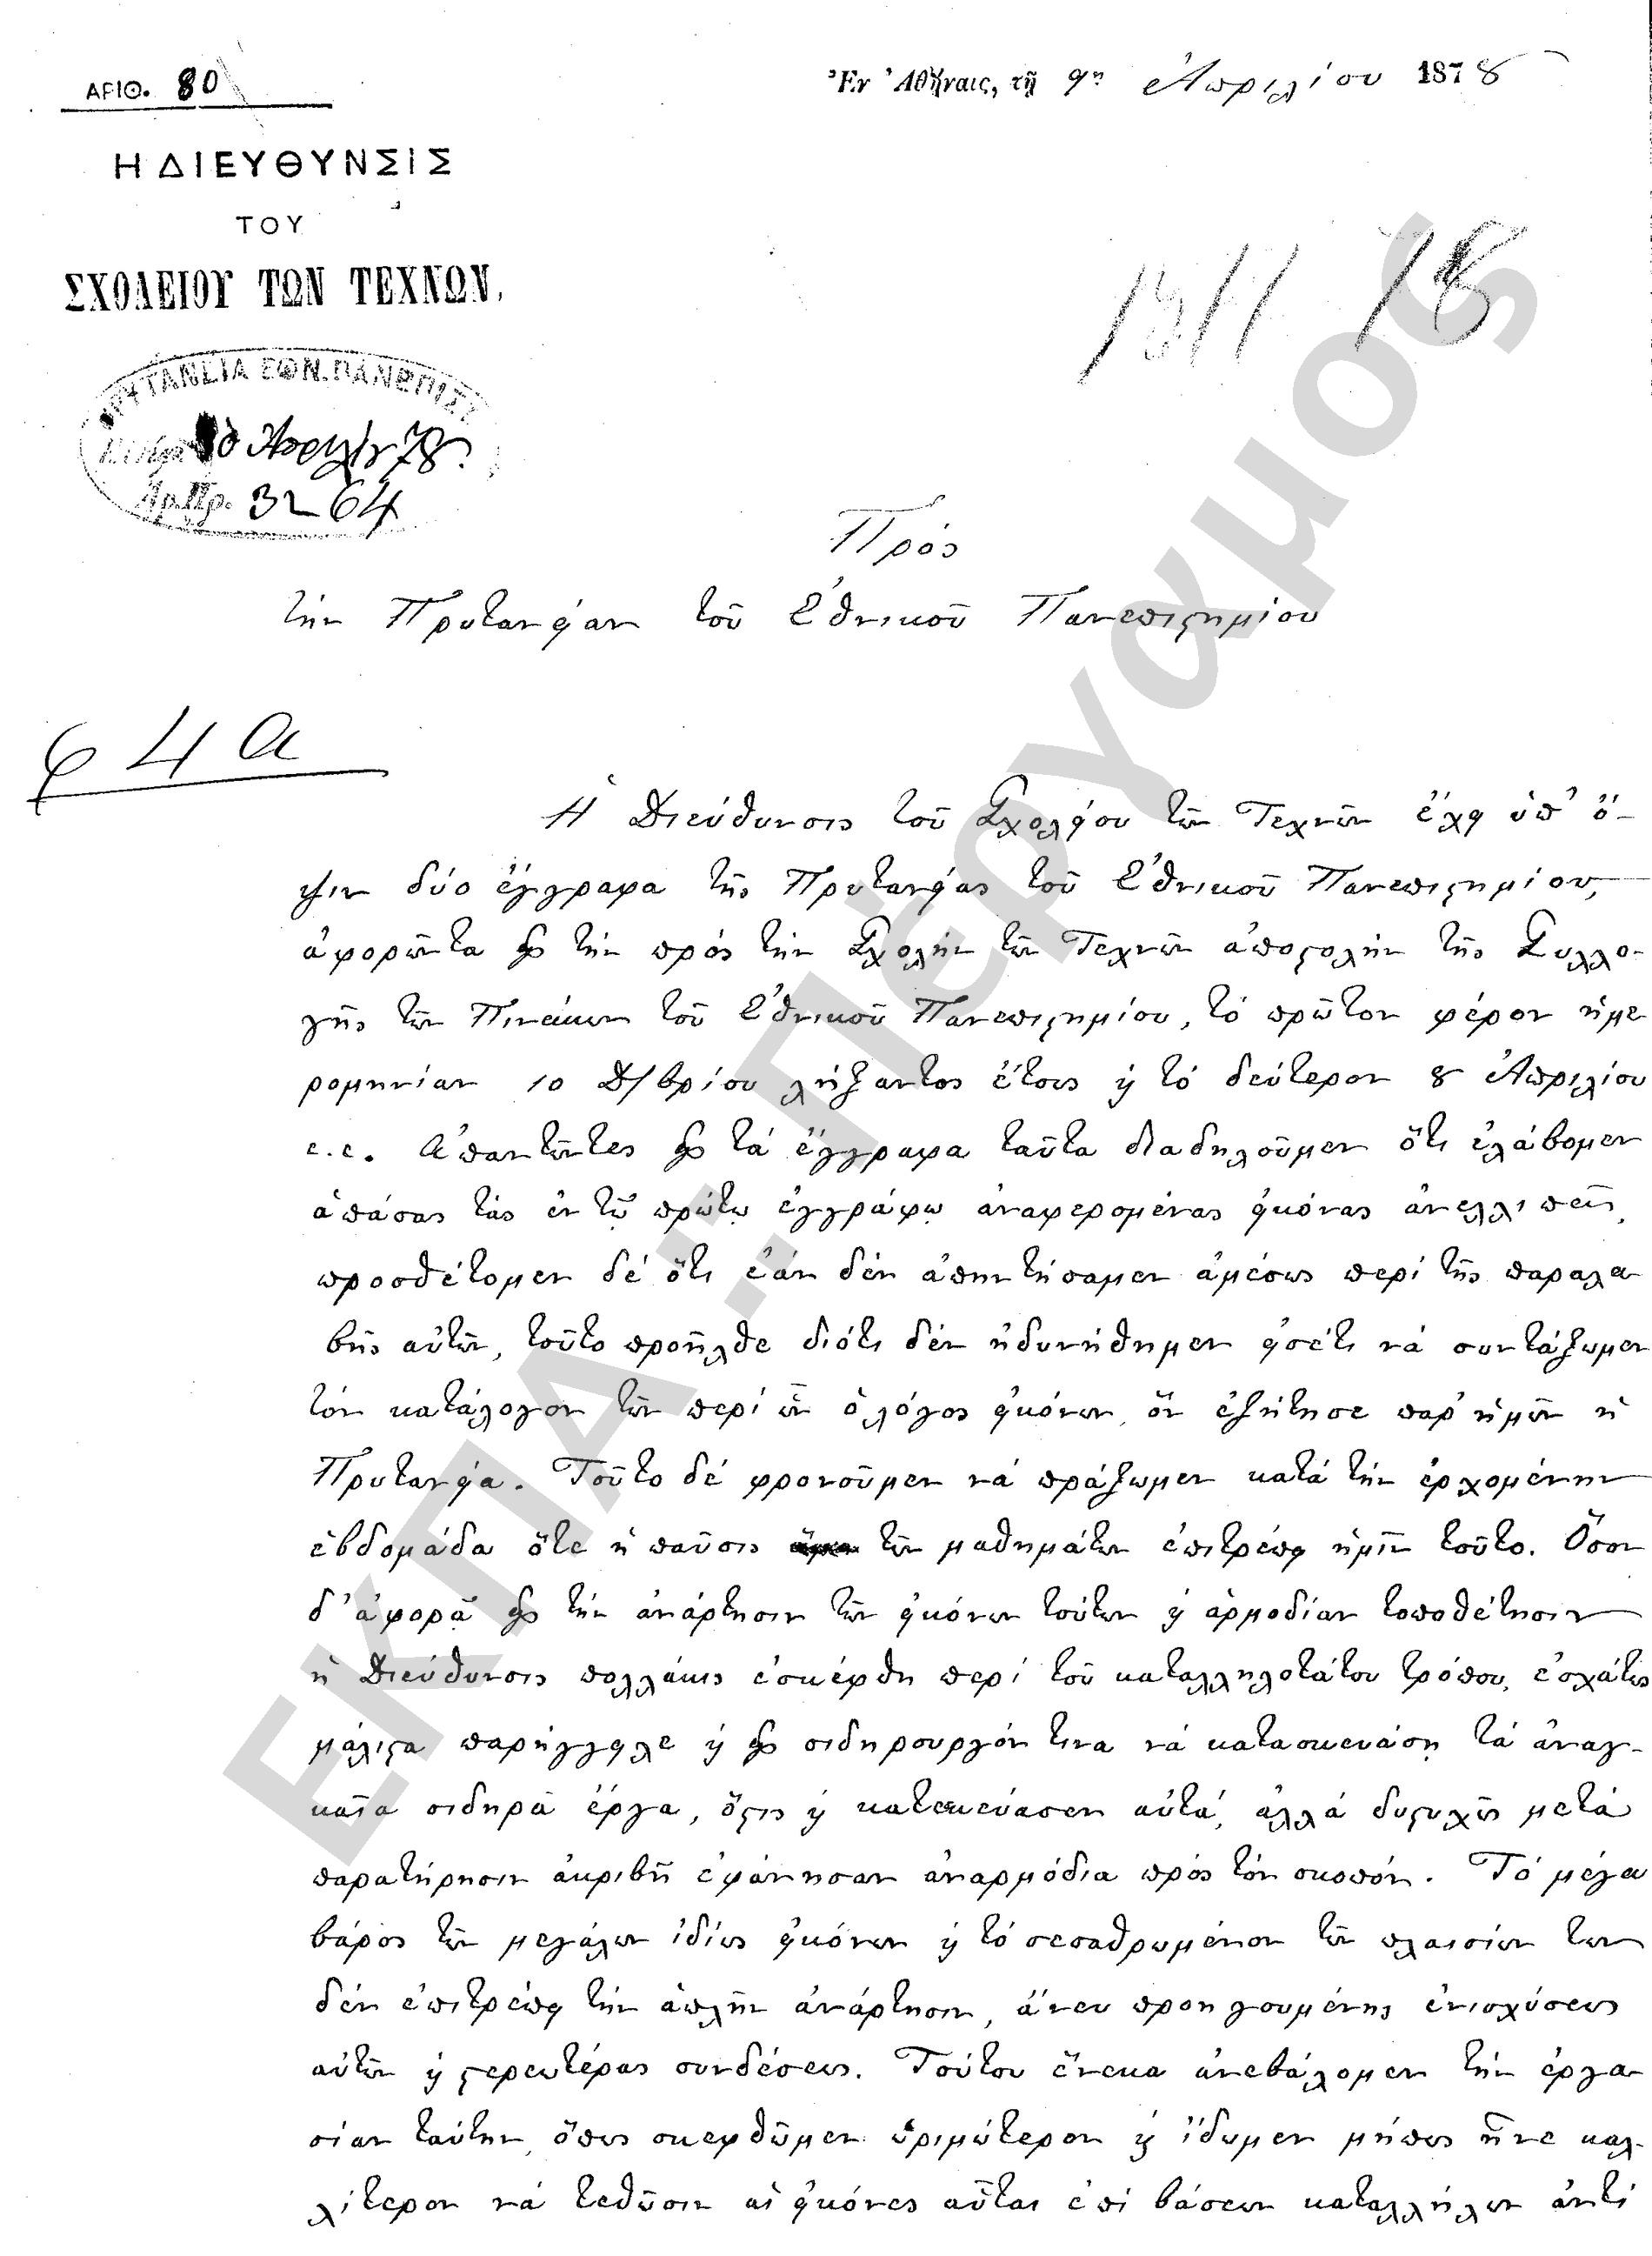 ΑΡΙΘ. 80
Ἐν Ἀθήναις, τῇ 9ῃ Ἀπριλίου 1878
Η ΔΙΕΥΘΥΝΣΙΣ
ΤΟΥ
ΣΧΟΛΕΙΟΥ ΤΩΝ ΤΕΧΝΩΝ.
ΠΡΥΤΑΝΕΙΑ ΕΘΝ. ΠΑΝΕΠΙΣΤ
10 Ἀπριλίου 78.
Ἀρ. Πρ. 3264
Πρός
τὴν Πρυτανείαν τοῦ Ἐθνικοῦ Πανεπιστημίου
φ 4 α
Ἡ Διεύθυνσις τοῦ Σχολείου τῶν Τεχνῶν ἔχει ὑπ' ὄ-
ψιν δύο ἔγγραφα τῆς Πρυτανείας τοῦ Ἐθνικοῦ Πανεπιστημίου,
ἀφορῶντα εἰς τὴν πρὸς τὴν Σχολὴν τῶν Τεχνῶν ἀποστολὴν τῆς Συλλο-
γῆς τῶν Πινάκων τοῦ Ἐθνικοῦ Πανεπιστημίου, τὸ πρῶτον φέρον ἡμε
ρομηνίαν 10 Δ/βρίου λήξαντος ἔτους ϗ τὸ δεύτερον 8 Ἀπριλίου
ἐ.ἔ. Ἀπαντῶντες εἰς τὰ ἔγγραφα ταῦτα διαδηλοῦμεν ὅτι ἐλάβομεν
ἁπάσας τὰς ἐν τῷ πρώτῳ ἐγγράφῳ ἀναφερομένας εἰκόνας ἀνελλιπεῖς,
προσθέτομεν δὲ ὅτι ἐὰν δὲν ἀπηντήσαμεν ἀμέσως περὶ τῆς παραλα
βῆς αὐτῶν, τοῦτο προῆλθε διότι δὲν ἠδυνήθημεν εἰσέτι νὰ συντάξωμεν
τὸν κατάλογον τῶν περὶ ὧν ὁ λόγος εἰκόνων, ὃν ἐζήτησε παρ' ἡμῶν ἡ
Πρυτανεία. Τοῦτο δὲ φρονοῦμεν νὰ πράξωμεν κατὰ τὴν ἐρχομένην
ἑβδομάδα ὅτε ἡ παῦσις τῶν μαθημάτων ἐπιτρέπει ἡμῖν τοῦτο. Ὅσον
δ' ἀφορᾷ εἰς τὴν ἀνάρτησιν τῶν εἰκόνων τούτων ϗ ἁρμοδίαν τοποθέτησιν
ἡ Διεύθυνσις πολλάκις ἐσκέφθη περὶ τοῦ καταλληλοτάτου τρόπου, ἐσχάτως
μάλιστα παρήγγειλε ϗ εἰς σιδηρουργόν τινα νὰ κατασκευάσῃ τὰ ἀναγ-
καῖα σιδηρᾶ ἔργα, ὅστις ϗ κατεσκεύασεν αὐτά, ἀλλὰ δυστυχῶς μετὰ
παρατήρησιν ἀκριβῆ ἐφάνησαν ἀναρμόδια πρὸς τὸν σκοπόν. Τὸ μέγα
βάρος τῶν μεγάλων ἰδίως εἰκόνων ϗ τὸ σεσαθρωμένον τῶν πλαισίων των
δὲν ἐπιτρέπει τὴν ἁπλῆν ἀνάρτησιν, ἄνευ προηγουμένης ἐνισχύσεως
αὐτῶν ϗ στερεωτέρας συνδέσεως. Τούτου ἕνεκα ἀνεβάλομεν τὴν ἐργα
σίαν ταύτην, ὅπως σκεφθῶμεν ὡριμώτερον ϗ ἴδωμεν μήπως ἦνε καλ-
λίτερον νὰ τεθῶσιν αἱ εἰκόνες αὗται ἐπὶ βάσεων καταλλήλων ἀντὶ
ΕΚΠΑ: Πέργαμος